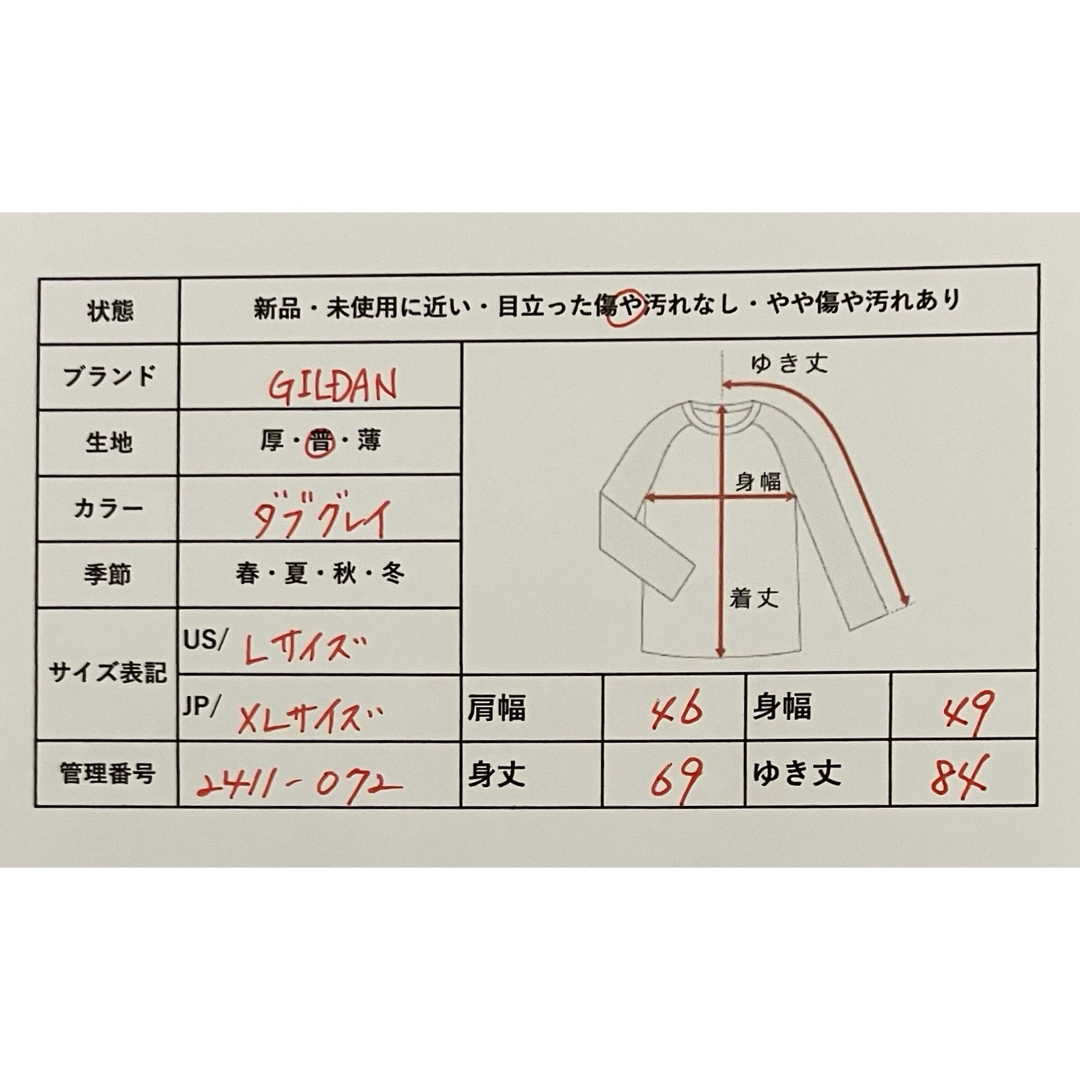 状態 新品・未使用に近い・目立った傷や汚れなし・やや傷や汚れあり
ブランド GILDAN
生地 厚・普・薄
カラー ダブグレイ
季節 春・夏・秋・冬
サイズ表記
US/ Lサイズ
JP/ XLサイズ
管理番号 2411-072
ゆき丈
身幅
着丈
肩幅 46 身幅 49
身丈 69 ゆき丈 84